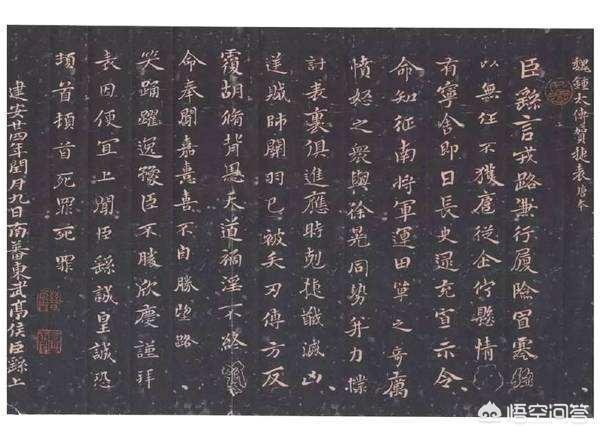 魏鍾太傅賀捷表 唐本
臣繇言戎路兼行履險冒寒臣
以無任不獲扈從企佇懸情
有寧舍即日長史逯充宣示令
命知征南將軍運田單之奇厲
憤怒之衆與徐晃同勢并力撲
討表裏俱進應時剋捷馘滅凶
逆賊帥關羽已被矢刃傅方反
覆胡脩背恩天道禍淫不終
命奉聞嘉憙喜不自勝望路
笑踊躍逸豫臣不勝欣慶謹拜
表因便宜上聞臣繇誠皇誠恐
頓首頓首死罪死罪
建安廿四年閏月九日南蕃東武亭侯臣繇上
悟空问答